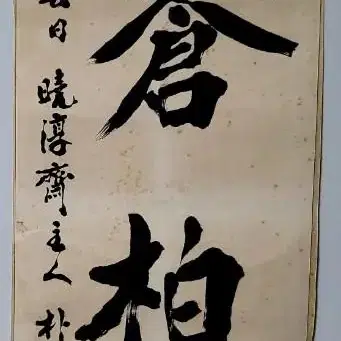 倉柏
日曉淳齋主人朴